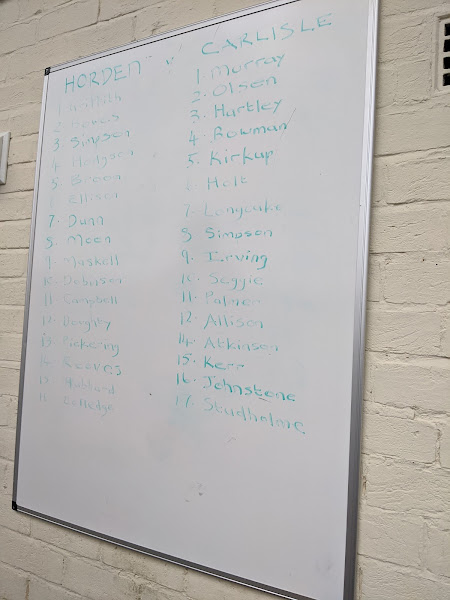 HORDEN v CARLISLE
1
2
3 Simpson
4 Hodgson
5. Breen
Ellison
7. Dunn
8. Moon
9. Maskell
10. Robinson
11. Campbell
12. Doughty
13 Pickering
14 Reeves
15. Hubbard
1. Murray
2. Olsen
3. Hartley
4. Rowman
5. Kirkup
Holt
7. Longcake
8 Simpson
9. Irving
10. Seggie
11. Palmer
12. Allison
14. Atkinson
15. Kerr
16. Johnstone
17. Studholme